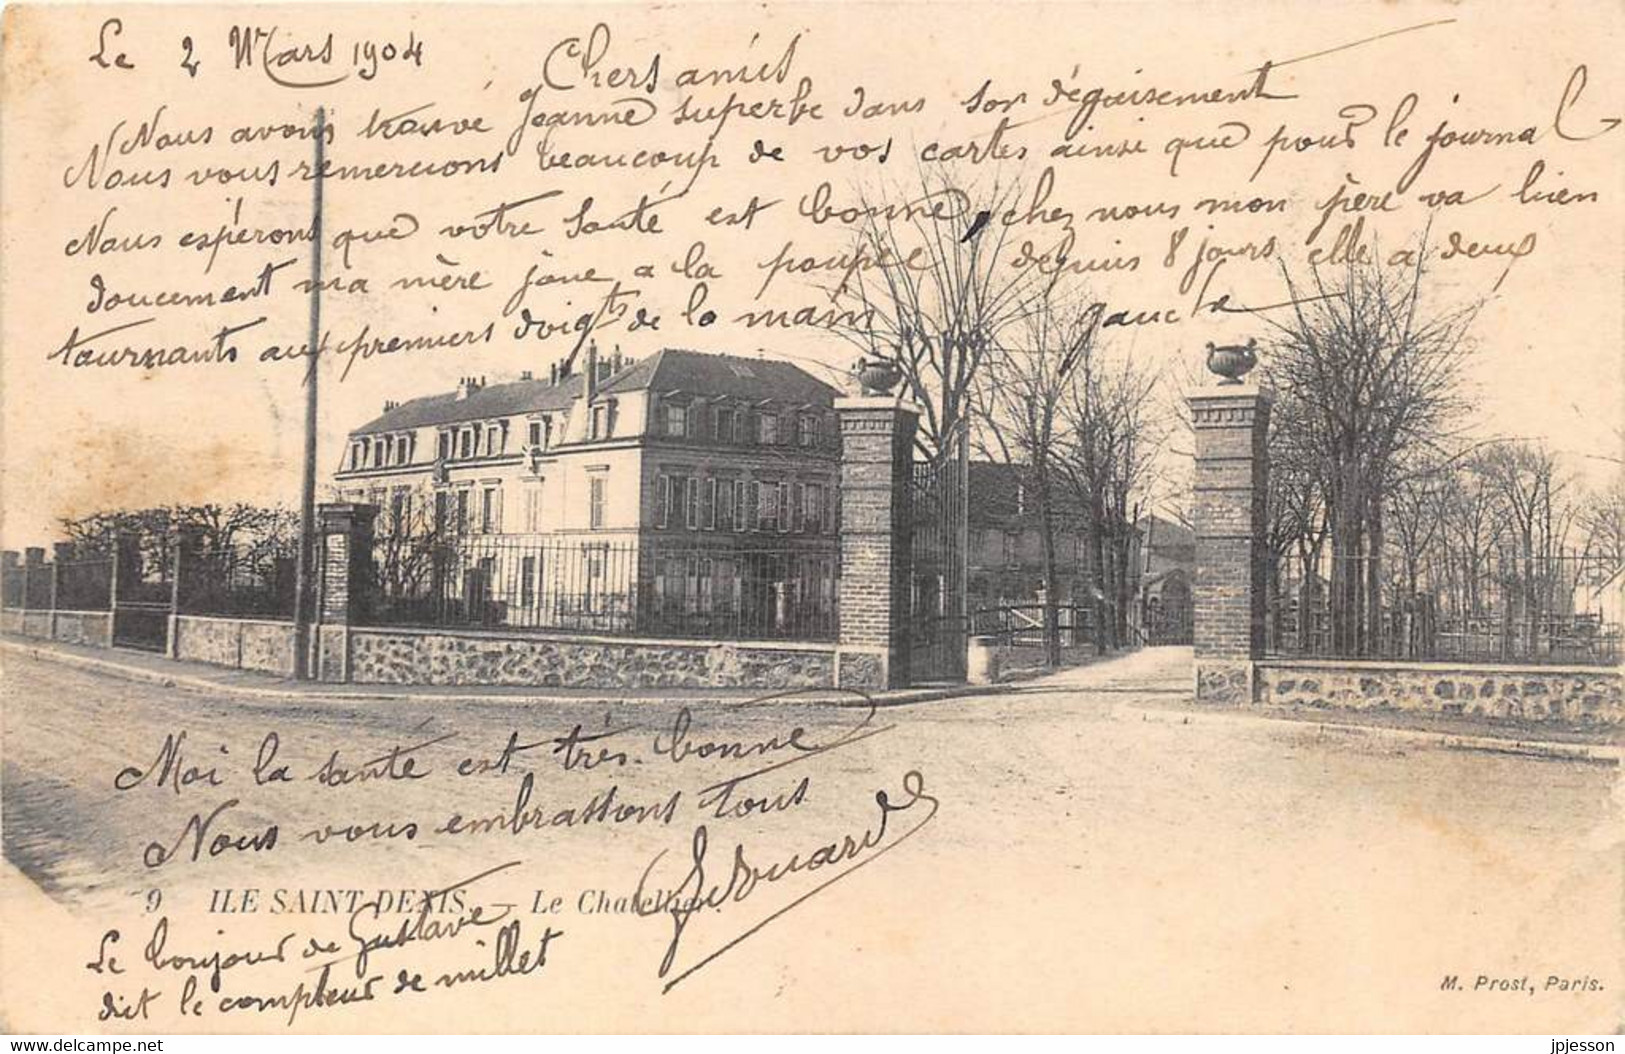 Le 2 Mars 1904
Chers amis
Nous avons trouvé Jeanne superbe dans son déguisement
Nous vous remercions beaucoup de vos cartes ainsi que pour le journal
Nous espérons que votre santé est bonne, chez nous mon père va bien
doucement ma mère joue a la poupée depuis 8 jours elle a deux
tournants aux premiers doigts de la main gauche
Moi la santé est très bonne
Nous vous embrassons tous
Edouard
9 ILE SAINT-DENIS. — Le Chatellier.
Le bonjour de Gustave
dit le compteur de millet
M. Prost, Paris.
www.delcampe.net
jpjesson